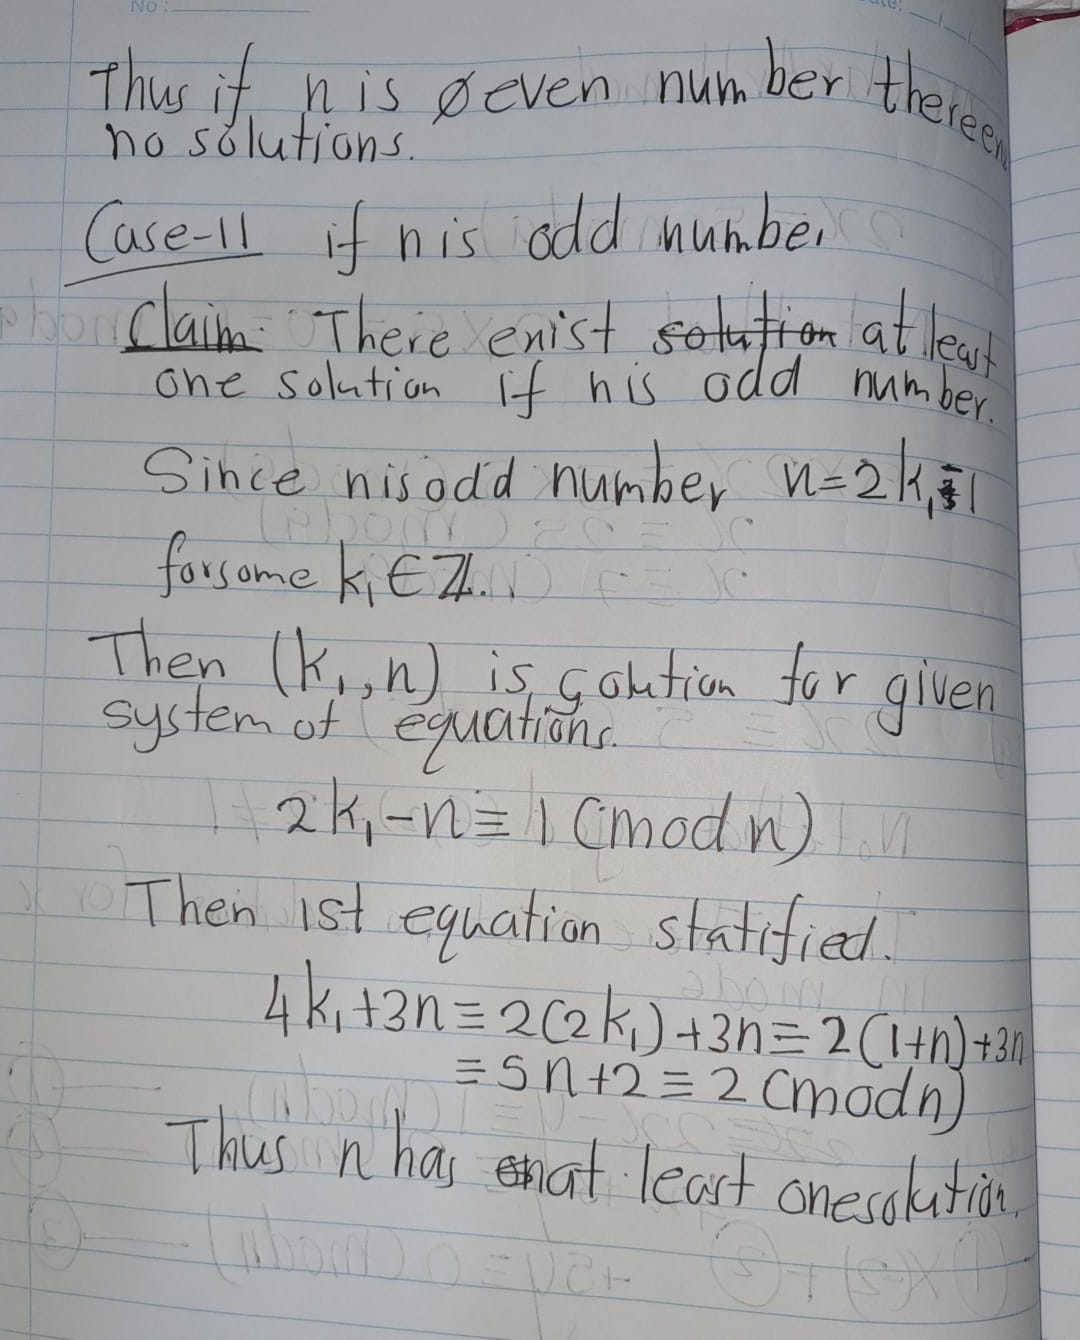 No:
Thus if n is even number there en
no solutions.
Case-II if n is odd number
Claim: There enist solution at least
one solution if n is odd number.
Since n is odd number n=2k₁-1
for some k₁ ∈ ℤ.
Then (k₁, n) is solution for given
system of equations.
2k₁-n ≡ 1 (mod n)
Then 1st equation statified.
4k₁+3n ≡ 2(2k₁)+3n ≡ 2(1+n)+3n
≡ 5n+2 ≡ 2 (mod n)
Thus n has at least one solution.